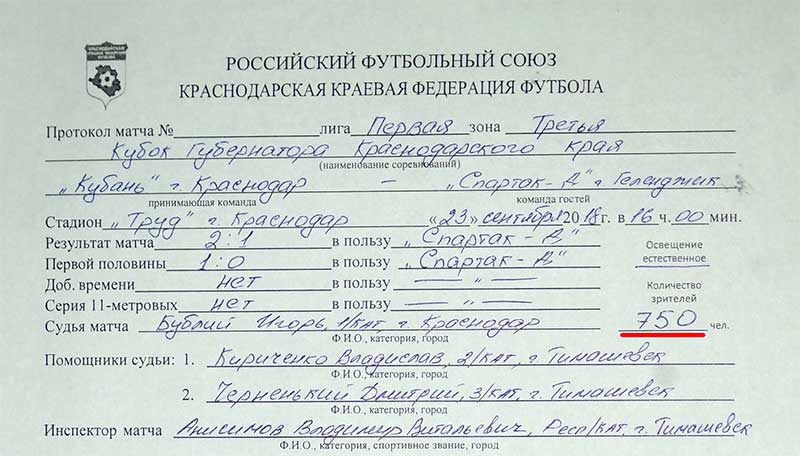 КРАСНОДАРСКАЯ
КРАЕВАЯ ФЕДЕРАЦИЯ
ФУТБОЛА
РОССИЙСКИЙ ФУТБОЛЬНЫЙ СОЮЗ
КРАСНОДАРСКАЯ КРАЕВАЯ ФЕДЕРАЦИЯ ФУТБОЛА
Протокол матча № лига Первая зона Третья
Кубок Губернатора Краснодарского края
(наименование соревнований)
„Кубань" г. Краснодар — „Спартак-Д" г. Геленджик
принимающая команда команда гостей
Стадион „Труд" г. Краснодар «23» сентября 2018г. в 16 ч. 00 мин.
Результат матча 2:1 в пользу „Спартак-Д" Освещение
Первой половины 1:0 в пользу „Спартак-Д" естественное
Доб. времени нет в пользу — „ —
Количество
Серия 11-метровых нет в пользу — „ — зрителей
Судья матча Бублий Игорь, 1/кат, г. Краснодар 750 чел.
Ф.И.О., категория, город
Помощники судьи: 1. Кириченко Владислав, 2/кат, г. Тимашевск
Ф.И.О., категория, город
2. Черненький Дмитрий, 3/кат, г. Тимашевск
Ф.И.О., категория, город
Инспектор матча Анисимов Владимир Витальевич, Респ/кат, г. Тимашевск
Ф.И.О., категория, спортивное звание, город